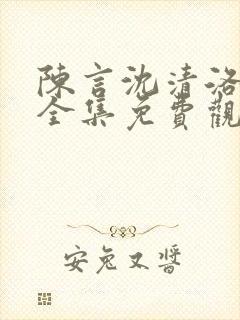 陳言沈清洛
全集免費觀
安兔又醬